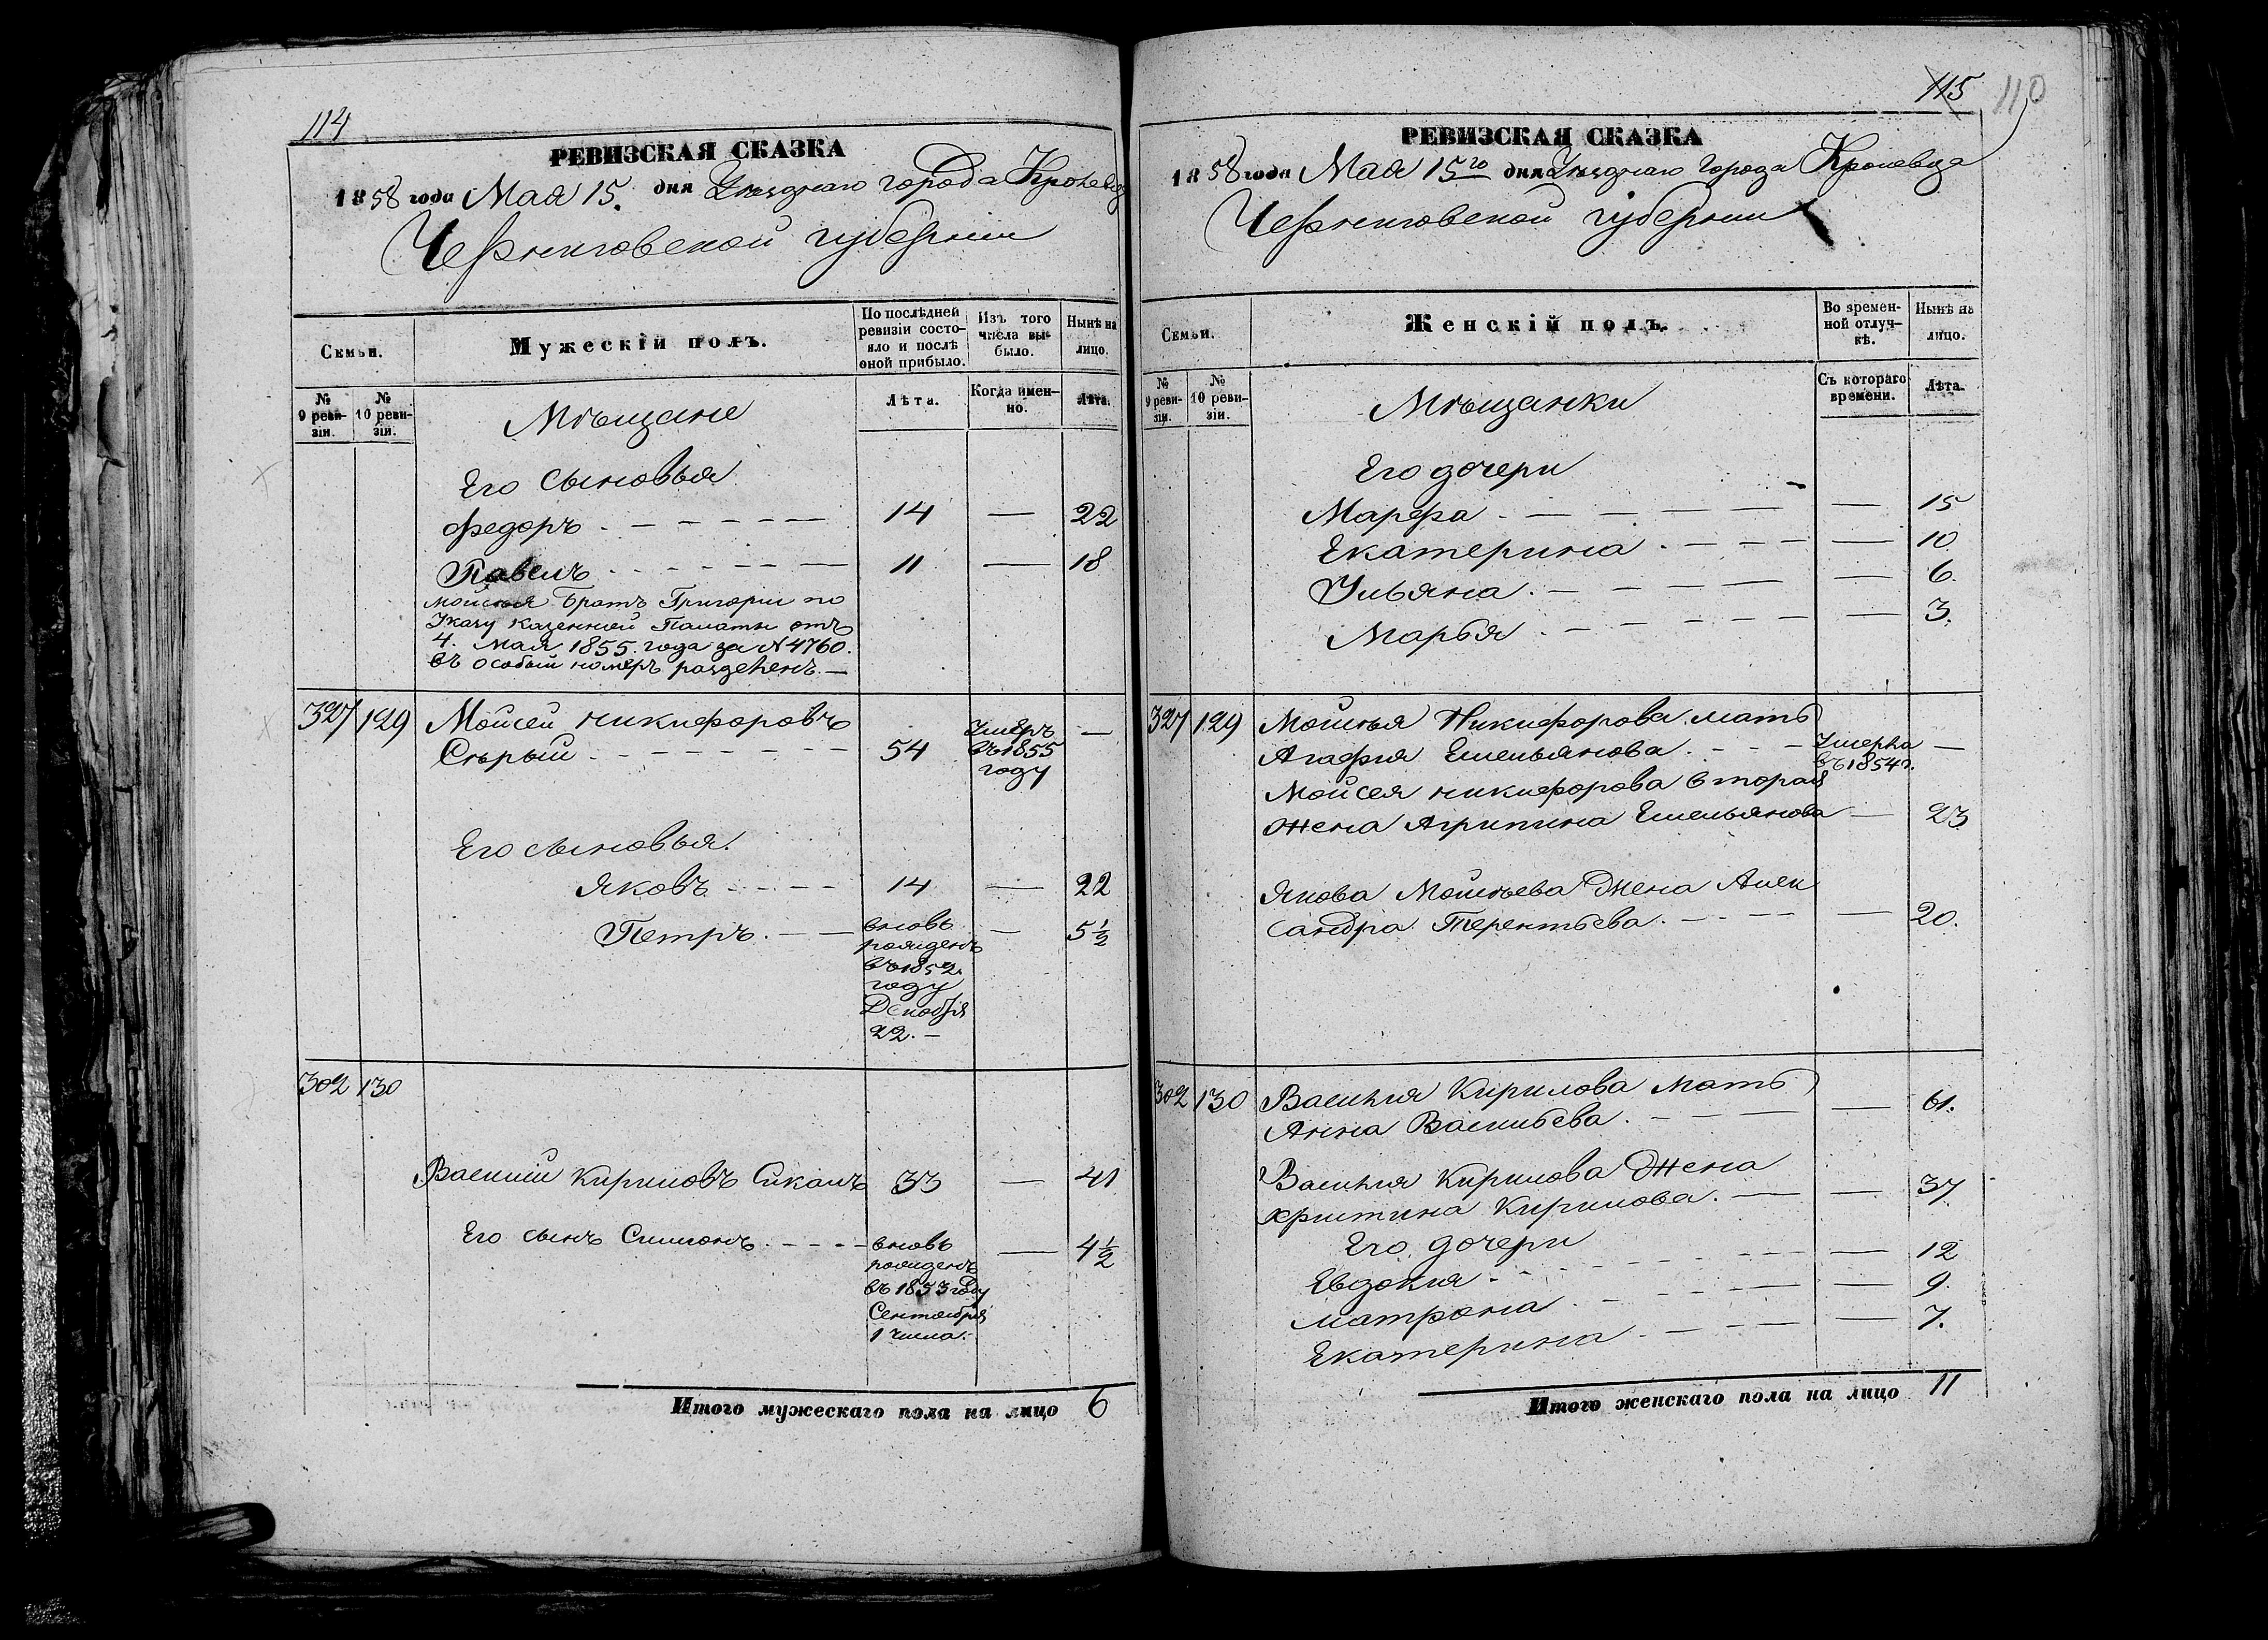 114
РЕВИЗСКАЯ СКАЗКА
1858 года Мая 15. дня Уѣзднаго города Кролевца
Черниговской губерніи
Семьи.
Мужескій полъ.
По послѣдней ревизіи состояло и послѣ оной прибыло.
Изъ того числа выбыло.
Нынѣ на лицо.
№ 9 ревизіи.
№ 10 ревизіи.
Мѣщане
Лѣта.
Когда именно.
Лѣта.
Его сыновья
Федоръ 14 — 22
Павелъ 11 — 18
Моисея Братъ Григорій по
Указу Казенной Палаты отъ
4. Мая 1855 года за № 4760.
въ особый номеръ раздѣленъ. —
327 129 Мойсей Никифоровъ
Сѣрый 54 Умеръ въ 1855 году —
Его сыновья.
Яковъ 14 — 22
Петръ вновь рожденъ въ 1852 году Декабря 22. — — 5 1/2
302 130
Василій Кириловъ Сикалъ 33 — 41
Его сынъ Симионъ вновь рожденъ въ 1853 году Сентября 1 числа. — 4 1/2
Итого мужескаго пола на лицо 6
115 110
РЕВИЗСКАЯ СКАЗКА
1858 года Мая 15го дня Уѣзднаго города Кролевца
Черниговской губерніи
Семьи.
Женскій полъ.
Во времен-
ной отлуч-
кѣ.
Нынѣ на
лицо.
№ 9 ревизіи.
№ 10 ревизіи.
Мѣщанки
Съ котораго
времени.
Лѣта.
Его дочери
Марфа — 15
Екатерина — 10
Ульяна — 6.
Марья — 3.
327 129 Моисея Никифорова мать
Агафия Емельянова Умерла въ 1854 г. —
Мойсея Никифорова вторая
жена Агрипина Емельянова — 23
Якова Моисѣева жена Алек
сандра Терентьева — 20.
302 130 Василия Кирилова мать
Анна Васильева — 61.
Василия Кирилова жена
Христина Кирилова — 37.
Его дочери
Евдокия — 12
Матрона — 9.
Екатерина — 7.
Итого женскаго пола на лицо 11